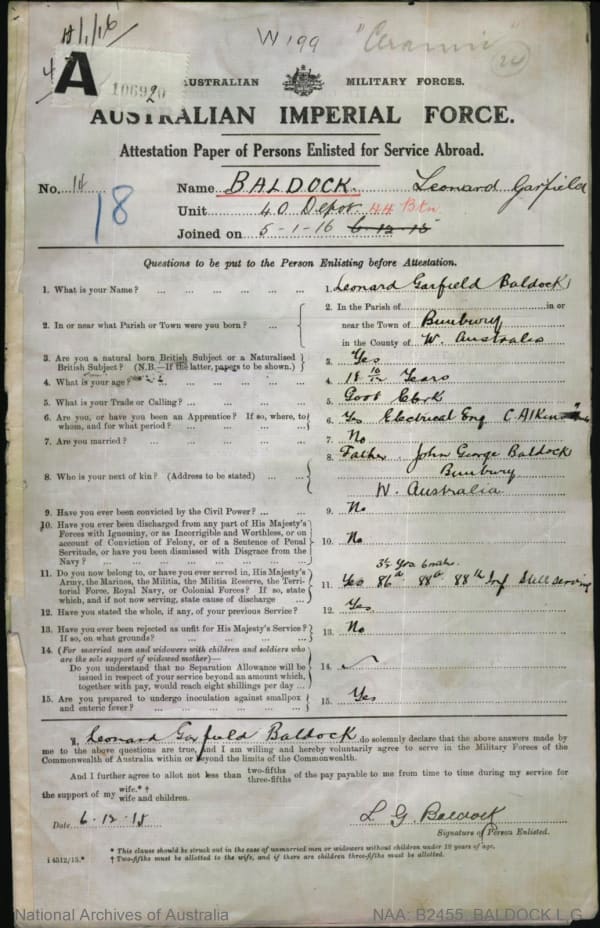 W199
A
106920
AUSTRALIAN MILITARY FORCES.
AUSTRALIAN IMPERIAL FORCE.
Attestation Paper of Persons Enlisted for Service Abroad.
No. 14
18
Name BALDOCK. Leonard Garfield
Unit 40 Depot 44 Btn
Joined on 5-1-16 6-12-15
Questions to be put to the Person Enlisting before Attestation.
1. What is your Name? ... 1. Leonard Garfield Baldock
2. In or near what Parish or Town were you born? ... 2. In the Parish of in or
near the Town of Bunbury
in the County of W. Australia
3. Are you a natural born British Subject or a Naturalised
British Subject? (N.B.—If the latter, papers to be shown.) 3. Yes
4. What is your age? 4. 18 10/12 Years
5. What is your Trade or Calling? ... 5. Govt Clerk
6. Are you, or have you been an Apprentice? If so, where, to
whom, and for what period? ... 6. Yes Electrical Eng
7. Are you married? ... 7. No
8. Who is your next of kin? (Address to be stated) ... 8. Father. John George Baldock
Bunbury
W. Australia
9. Have you ever been convicted by the Civil Power? ... 9. No
10. Have you ever been discharged from any part of His Majesty's
Forces with Ignominy, or as Incorrigible and Worthless, or on
account of Conviction of Felony, or of a Sentence of Penal
Servitude, or have you been Dismissed with Disgrace from the
Navy? ... 10. No
11. Do you now belong to, or have you ever served in, His Majesty's
Army, the Marines, the Militia, the Militia Reserve, the Terri-
torial Force, Royal Navy, or Colonial Forces? If so, state
which, and if not now serving, state cause of discharge ... 11. Yes 86th 88th 88th Inf Still serving
12. Have you stated the whole, if any, of your previous Service? 12. Yes
13. Have you ever been rejected as unfit for His Majesty's Service?
If so, on what grounds? ... 13. No
14. (For married men and widowers with children and soldiers who
are the sole support of widowed mother)—
Do you understand that no Separation Allowance will be
issued in respect of your service beyond an amount which,
together with pay, would reach eight shillings per day ... 14.
15. Are you prepared to undergo inoculation against smallpox
and enteric fever? ... 15. Yes
I, Leonard Garfield Baldock, do solemnly declare that the above answers made by
me to the above questions are true, and I am willing and hereby voluntarily agree to serve in the Military Forces of the
Commonwealth of Australia within or beyond the limits of the Commonwealth.
And I further agree to allot not less than two-fifths
three-fifths of the pay payable to me from time to time during my service for
the support of my wife.*†
wife and children.
Date 6.12.15 L. G. Baldock
Signature of Person Enlisted.
* This clause should be struck out in the case of unmarried men or widowers without children under 18 years of age.
† Two-fifths must be allotted to the wife, and if there are children three-fifths must be allotted.
National Archives of Australia NAA: B2455, BALDOCK L G